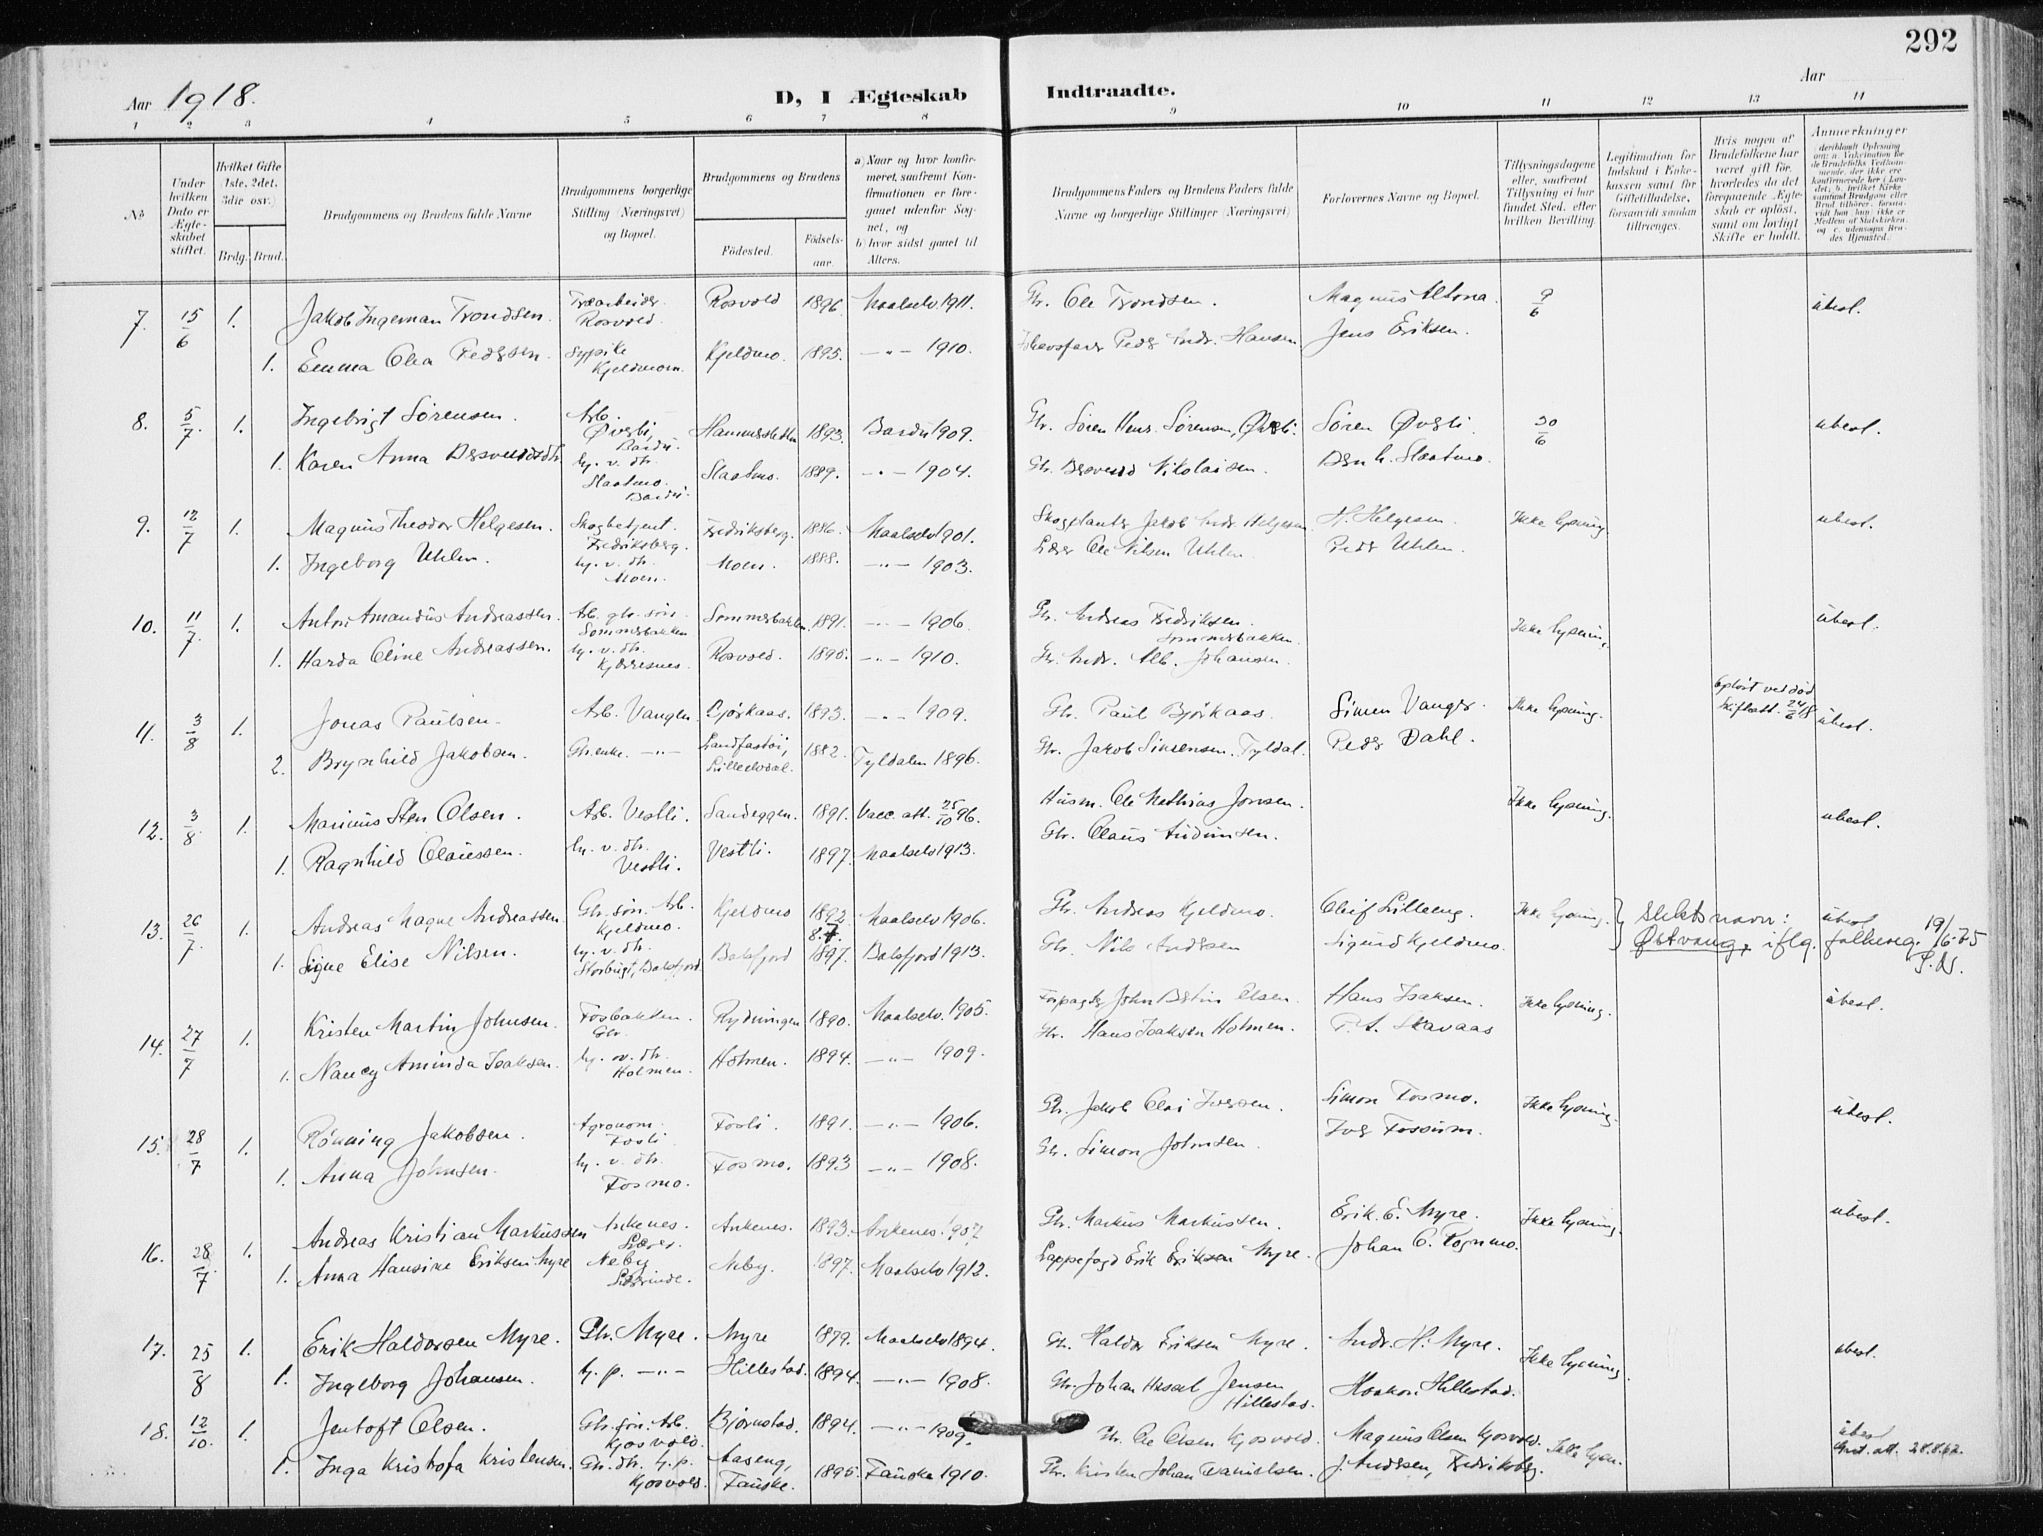 292
Aar 1918.
D, I Ægteskab Indtraadte.
Aar
1 2 3 4 5 6 7 8 9 10 11 12 13 14
No
Under hvilken Dato er Ægteskabet stiftet.
Hvilket Gifte (1ste, 2det, 3die osv.)
Brdg. Brud.
Brudgommens og Brudens fulde Navne
Brudgommens borgerlige Stilling (Næringsvei) og Bopæl.
Brudgommens og Brudens
Födested.
Födselsaar.
a) Naar og hvor konfirmeret, saafremt Konfirmationen er foregaaet udenfor Sognet, og
b) hvor sidst gaaet til Alters.
Brudgommens Faders og Brudens Faders fulde Navne og borgerlige Stillinger (Næringsvei)
Forlovernes Navne og Bopæl.
Tillysningsdagene eller, saafremt Tillysning ei har fundet Sted, efter hvilken Bevilling
Legitimation for Indskud i Enkekassen samt for Giftetilladelse, forsaavidt saadan tiltrænges.
Hvis nogen af Brudefolkene har været gift før, hvorledes da det foregaaende Ægteskab er opløst, samt om lovligt Skifte er holdt.
Anmerkninger
7. 15/6 1. Jakob Ingeman Trondsen. Træarbeider Rosvold. Rosvold 1896. Maalselv 1911. Gbr. Ole Trondsen. Magnus Altona. 9/6 übest.
1. Emma Olea Pedersen. Sypike Kjeldmoen. Kjeldmo. 1895. —„— 1910. Peder Andr. Hansen Jens Eriksen.
8. 5/7. 1. Ingebrigt Sørensen. Arb. Øverli, Bardu. 1893. Bardu 1909. Gbr. Søren Hens. Sørensen, Øverli. Søren Øverli. 30/6 übest.
1. Karen Anna h.v. dtr. Slaatmo. Bardu. Slaatmo. 1889. —„— 1904. Gbr. Nikolaisen. Slaatmo.
9. 12/7 1. Magnus Theodor Helgesen. Skogbetjent. Fredriksberg. Fredriksberg. 1886. Maalselv 1901. Skogplanter Jakob Andr. Helgesen H. Helgesen Ikke lysning übest.
1. Ingeborg Uhlen. h. v. dtr. Moen. Moen. 1888. —„— 1903. Lærer Ole Nilsen Uhlen Peder Uhlen.
10. 11/7. 1. Anton Amandus Andreassen. Arb. gbr. søn Sommerbakken Sommerbakken. 1891. —„— 1906. Gbr. Andreas Fredriksen. Sommerbakken. Ikke lysning. übest.
1. Harda Oline Andreassen. h. v. dtr. Kjerresnes. Rosvold. 1895. —„— 1910. Gbr. Andr. Alb. Johansen.
11. 3/8 1. Jonas Paulsen. Arb. Vangen. Bjørkaas. 1893. —„— 1909. Gbr. Paul Bjørkaas. Simen Vanger. Ikke lysning. Opløst ved død Skifteatt. 24/6 18 übest.
2. Brynhild Jakobsen. Gbr.enke. —„— Lilleelvdal. 1882. Tyldalen 1896. Gbr. Jakob Simensen. Tyldal. Peder Dahl.
12. 3/8. 1. Marinus Sten Olsen. Arb. Vestli. Sandeggen. 1891. Vacc. att. 25/10 96. Husm. Ole Mathias Jonsen. Ikke lysning. übest.
1. Ragnhild Olaussen. h. v. dtr. Vestli. Vestli. 1897. Maalselv 1913. Gbr. Olaus Audunsen.
13. 26/7 1. Andreas Magne Andreassen. Gbr. søn. Arb. Kjeldmo. Kjeldmo 1892 8.7 Maalselv 1906. Gbr. Andreas Kjeldmo. Oluf Lilleeng. Ikke lysning. } Slektsnavn: übest 19/6.75
1. Signe Elise Nilsen. h. v. dtr. Storbugt, Balsfjord Balsfjord 1897. Balsfjord 1913. Gbr. Nils Andersen Sigurd Kjeldmo. Østvang, iflg. folkereg. S.N.
14. 27/7 1. Kristen Martin Johnsen. Fosbakken. Gbr. Rydningen 1890. Maalselv. 1905. Forpagter John Bertin Olsen. Hans Isaksen. Ikke lysning. übest.
1. Nancy Aminda Isaksen. h. v. dtr. Holmen. Holmen. 1894. —„— 1909. Gbr. Hans Isaksen Holmen. P. A. Skavaas
15. 28/7 1. Rønning Jakobsen. Agronom. Fosli Fosli. 1891. —„— 1906. Gbr. Jakob Olai Iversen. Simon Fosmo. Ikke lysning. übest.
1. Anna Johnsen. h. v. dtr. Fosmo. Fosmo. 1893 —„— 1908. Gbr. Simon Johnsen. Iver Fossum.
16. 28/7. 1. Andreas Kristian Markussen Ankenes. Lærer. Ankenes. 1893. Ankenes. 1907 Gbr. Markus Markussen. Erik. E. Myre. Ikke lysning. übest.
1. Anna Hansine Eriksen Myre Neby Lærerinde. Neby. 1897. Maalselv 1912. Lappefogd Erik Eriksen Myre. Johan O. Fognmo.
17. 25/8 1. Erik Haldorsen Myre. Gbr. Myre. Myre 1879. Maalselv 1894. Gbr. Haldor Eriksen Myre. Andr. H. Myre. Ikke lysning. übest.
1. Ingeborg Johansen. h. p. —„— Hillestad. 1894. —„— 1908. Gbr. Johan Jensen Hillestad. Haakon Hillestad.
18. 12/10. 1. Jentoft Olsen. Gbr. søn. Arb. Kjosvold. Bjørnstad. 1894. —„— 1909. Gbr. Ole Olsen Kjosvold. Magnus Olsen Kjosvold. Ikke lysn. übest. att. 28.8.62.
1. Inga Kristofa Kristensen. Gbr. dtr. h. p. Kjosvold. Aaseng, Fauske. 1895. Fauske 1910. Gbr. Kristen Johan Danielsen. J. Andersen, Fredriksberg.